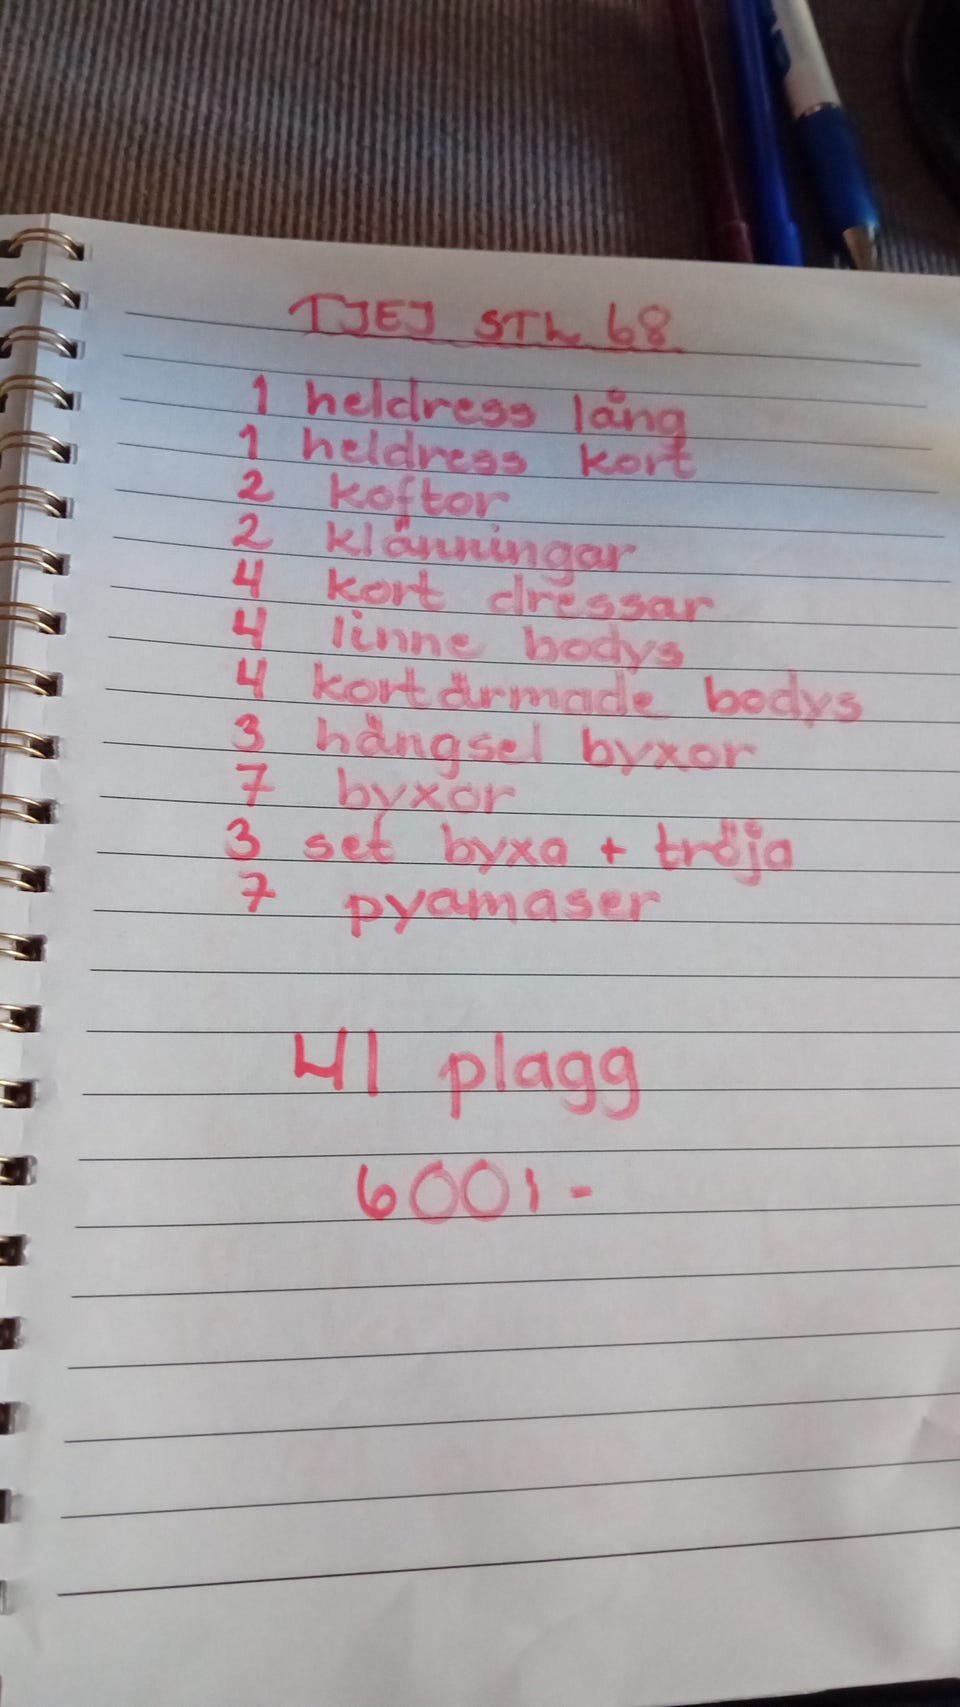 TJEJ STL 68
1 heldress lång
1 heldress kort
2 koftor
2 klänningar
4 kort dressar
4 linne bodys
4 kortärmade bodys
3 hängsel byxor
7 byxor
3 set byxa + tröja
7 pyamaser
41 plagg
600:-